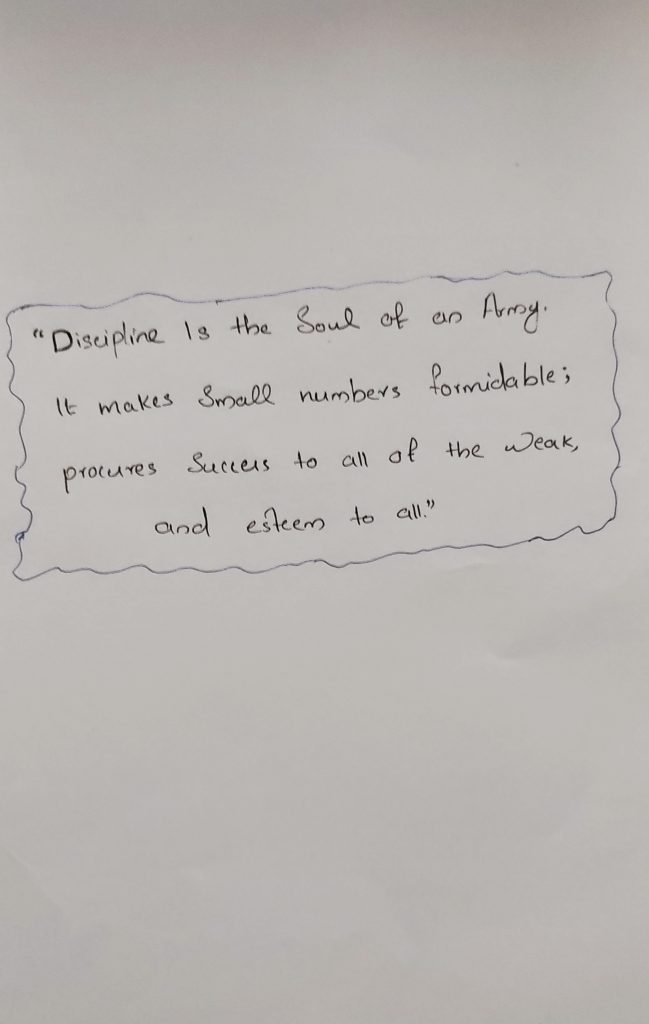 "Discipline Is the Soul of an Army.
It makes Small numbers formidable;
procures Success to all of the Weak,
and esteem to all."